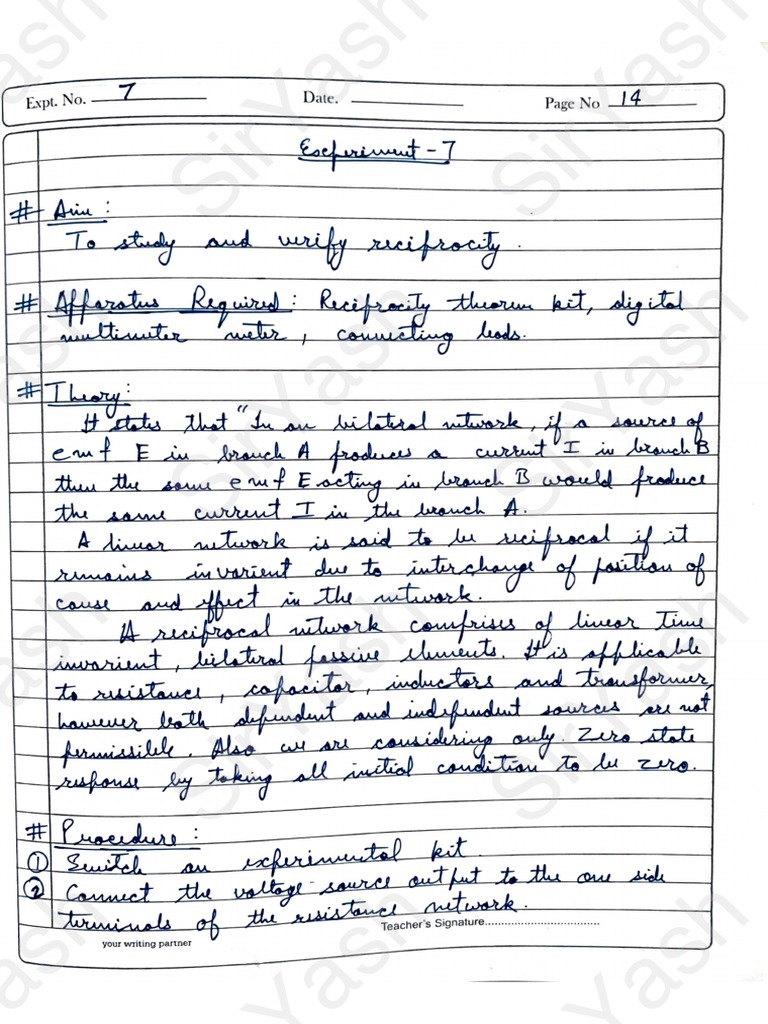 Expt. No. 7 Date. Page No 14
Experiment - 7
# Aim :
To study and verify reciprocity.
# Apparatus Required : Reciprocity theorem kit, digital
multimeter meter, connecting leads.
# Theory :
It states that "In an bilateral network, if a source of
emf E in branch A produces a current I in branch B
then the same emf E acting in branch B would produce
the same current I in the branch A.
A linear network is said to be reciprocal if it
remains invarient due to interchange of position of
cause and effect in the network.
A reciprocal network comprises of linear time
invarient, bilateral passive elements. It is applicable
to resistance, capacitor, inductors and transformer,
however both dependent and independent sources are not
permissible. Also we are considering only. Zero state
response by taking all initial condition to be zero.
# Procedure :
① Switch on experimental kit.
② Connect the voltage source output to the one side
terminals of the resistance network.
Teacher's Signature....................................
your writing partner
SirYash